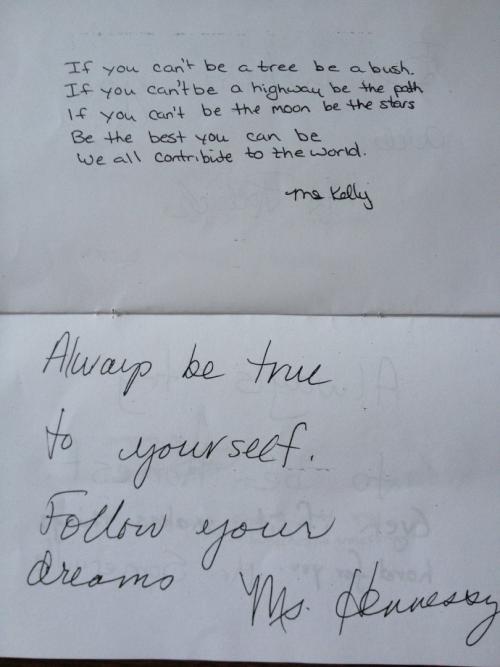 If you can't be a tree be a bush.
If you can't be a highway be the path
If you can't be the moon be the stars
Be the best you can be
We all contribute to the world.
Ms Kelly
Always be true
to yourself.
Follow your
dreams
Ms. Hennessy